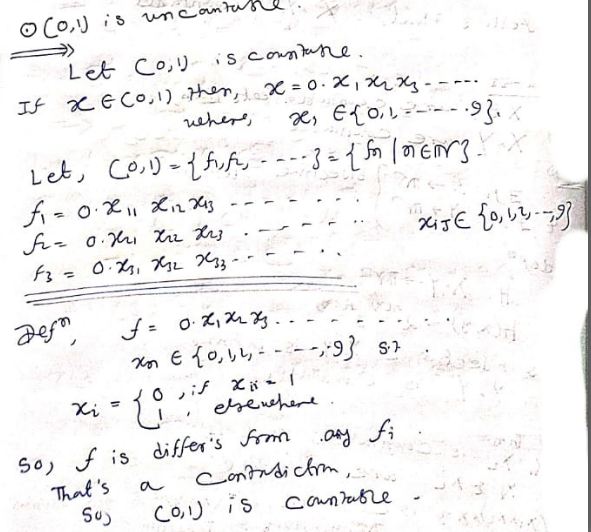 ⊙ (0,1) is uncountable.
⟹ Let (0,1) is countable.
If x ∈ (0,1) then, x = 0. x₁ x₂ x₃ -----
where, x₁ ∈ {0,1,------9}.
Let, (0,1) = {f₁, f₂, ----} = {fn | n ∈ N}.
f₁ = 0. x₁₁ x₁₂ x₁₃ -------
f₂ = 0. x₂₁ x₂₂ x₂₃ -------
xij ∈ {0,1,2,--,9}
f₃ = 0. x₃₁ x₃₂ x₃₃ -------
Defⁿ, f = 0. x₁ x₂ x₃ ---------
xn ∈ {0,1,2,-----,9} s.t
xi = { 0, if xii = 1
1, elsewhere.
So, f is differ's from any fi
That's a contradiction,
So, (0,1) is countable.